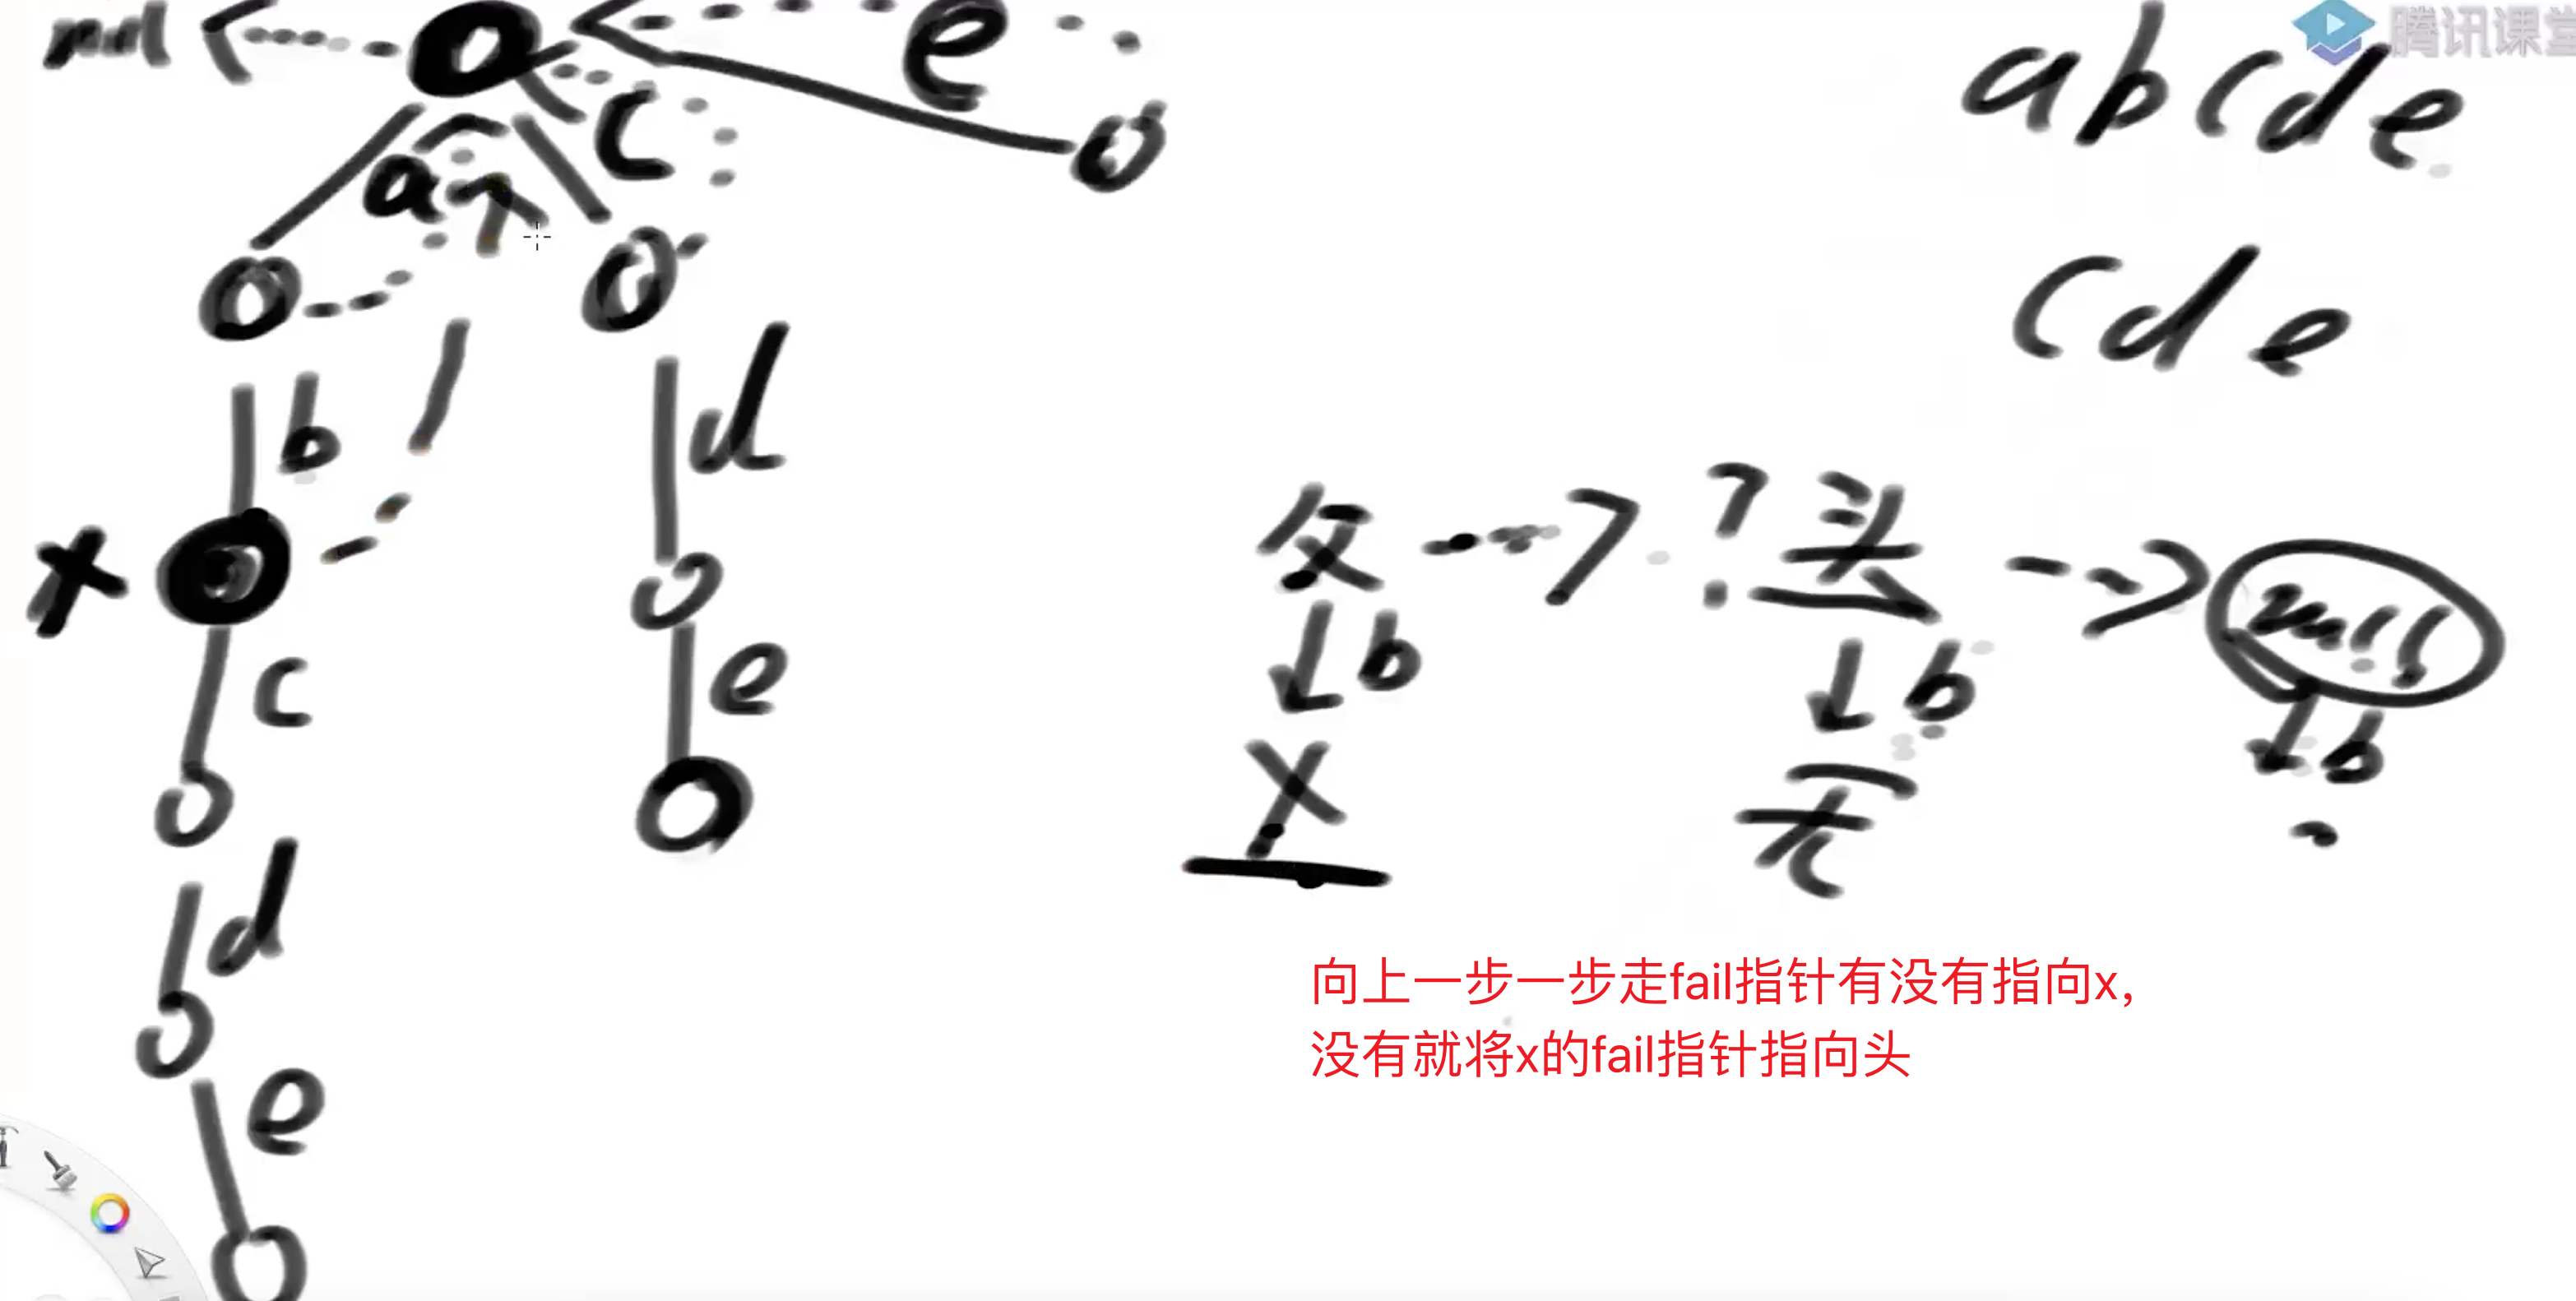 null
e
abcde
腾讯课堂
c
a
cde
b
d
父 ? 头 null
x
b b b
c
e
x 无
d
向上一步一步走fail指针有没有指向x,
没有就将x的fail指针指向头
e